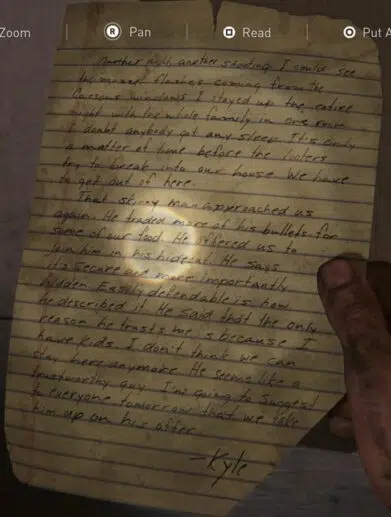 Zoom
R Pan
Read
Put A
Another night, another shooting. I could see
the muzzle flashes coming from the
Carsons windows. I stayed up the entire
night with the whole family in one room
I doubt anybody got any sleep. It's only
a matter of time before the looters
try to break into our house. We have
to get out of here.
That skinny man approached us
again. He traded more of his bullets for
some of our food. He offered us to
join him in his hideout. He says
it's secure and more importantly
hidden. Easily defendable is how
he described it. He said that the only
reason he trusts me is because I
have kids. I don't think we can
stay here anymore. He seems like a
trustworthy guy. I'm going to suggest
to everyone tomorrow that we take
him up on his offer
-Kyle